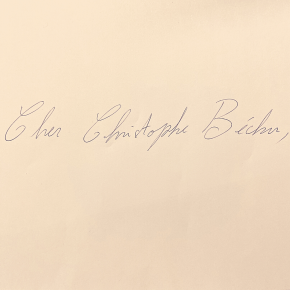 Cher Christophe Béchu,